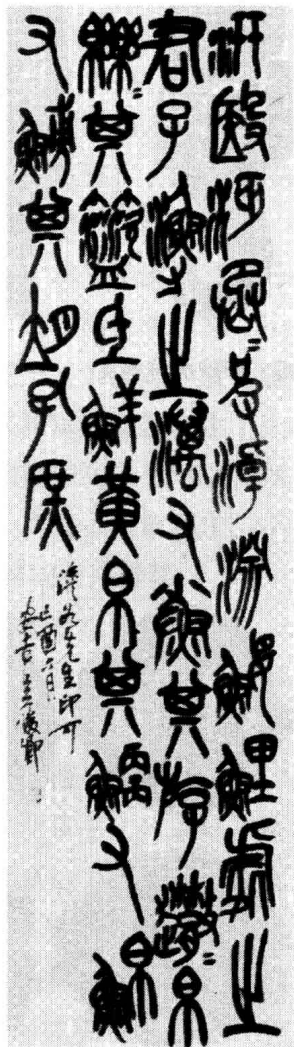 汧殹沔丞皮淖淵鰋鯉處之
君子漁之澫又小魚其斿帛
其氐鮮黃帛其鯾又鮊
又其孔庶
先生印可
己酉六月
安吉吳俊卿